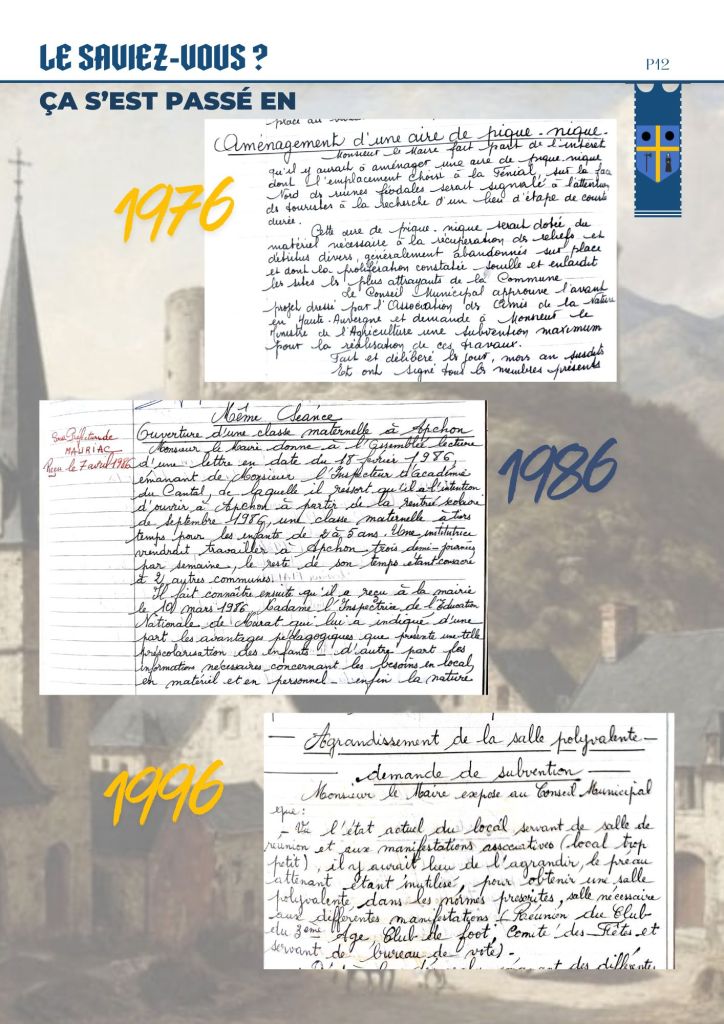 LE SAVIEZ-VOUS ?
P12
ÇA S'EST PASSÉ EN
1976
place au
Aménagement d'une aire de pique-nique.
Monsieur le Maire fait part de l'intérêt
qu'il y aurait à aménager une aire de pique-nique
dont l'emplacement choisi à la Fénial, sur la face
Nord des ruines féodales serait signalé à l'attention
des touristes à la recherche d'un lieu d'étape de courte
durée.
Cette aire de pique-nique serait dotée du
matériel nécessaire à la récupération des reliefs et
détritus divers, généralement abandonnés sur place
et dont la prolifération constatée souille et enlaidit
les sites les plus attrayants de la Commune
Le Conseil Municipal approuve l'avant
projet dressé par l'Association des Amis de la Nature
en Haute-Auvergne et demande à Monsieur le
Ministre de l'Agriculture une subvention maximum
pour la réalisation de ces travaux.
Fait et délibéré les jour, mois an susdits
Et ont signé tous les membres présents
1986
Sous-Préfecture de
MAURIAC
Reçu le 7 avril 1986
Même Séance
Ouverture d'une classe maternelle à Apchon
Monsieur le Maire donne à l'Assemblée lecture
d'une lettre en date du 18 février 1986,
émanant de Monsieur l'Inspecteur d'académie
du Cantal, de laquelle il ressort qu'il a l'intention
d'ouvrir à Apchon à partir de la rentrée scolaire
de septembre 1986, une classe maternelle à tiers
temps pour les enfants de 2 à 5 ans. Une institutrice
viendrait travailler à Apchon trois demi-journées
par semaine, le reste de son temps étant consacré
à 2 autres communes.
Il fait connaître ensuite qu'il a reçu à la mairie
le 19 mars 1986, Madame l'Inspectrice de l'Education
Nationale de Murat qui lui a indiqué d'une
part les avantages pédagogiques que présente une telle
préscolarisation des enfants - d'autre part les
informations nécessaires concernant les besoins en local,
en matériel et en personnel - enfin la nature
1996
Agrandissement de la salle polyvalente -
demande de subvention
Monsieur le Maire expose au Conseil Municipal
que :
- Vu l'état actuel du local servant de salle de
réunion et aux manifestations associatives (local trop
petit), il y aurait lieu de l'agrandir, le préau
attenant étant inutilisé, pour obtenir une salle
polyvalente dans les normes prescrites, salle nécessaire
aux différentes manifestations (Réunion du Club
du 3ème Age Club de foot, Comité des Fêtes et
servant de bureau de vote) -
des différentes